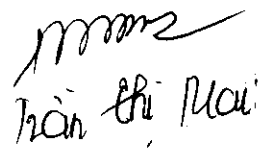 Trần Thị Mai